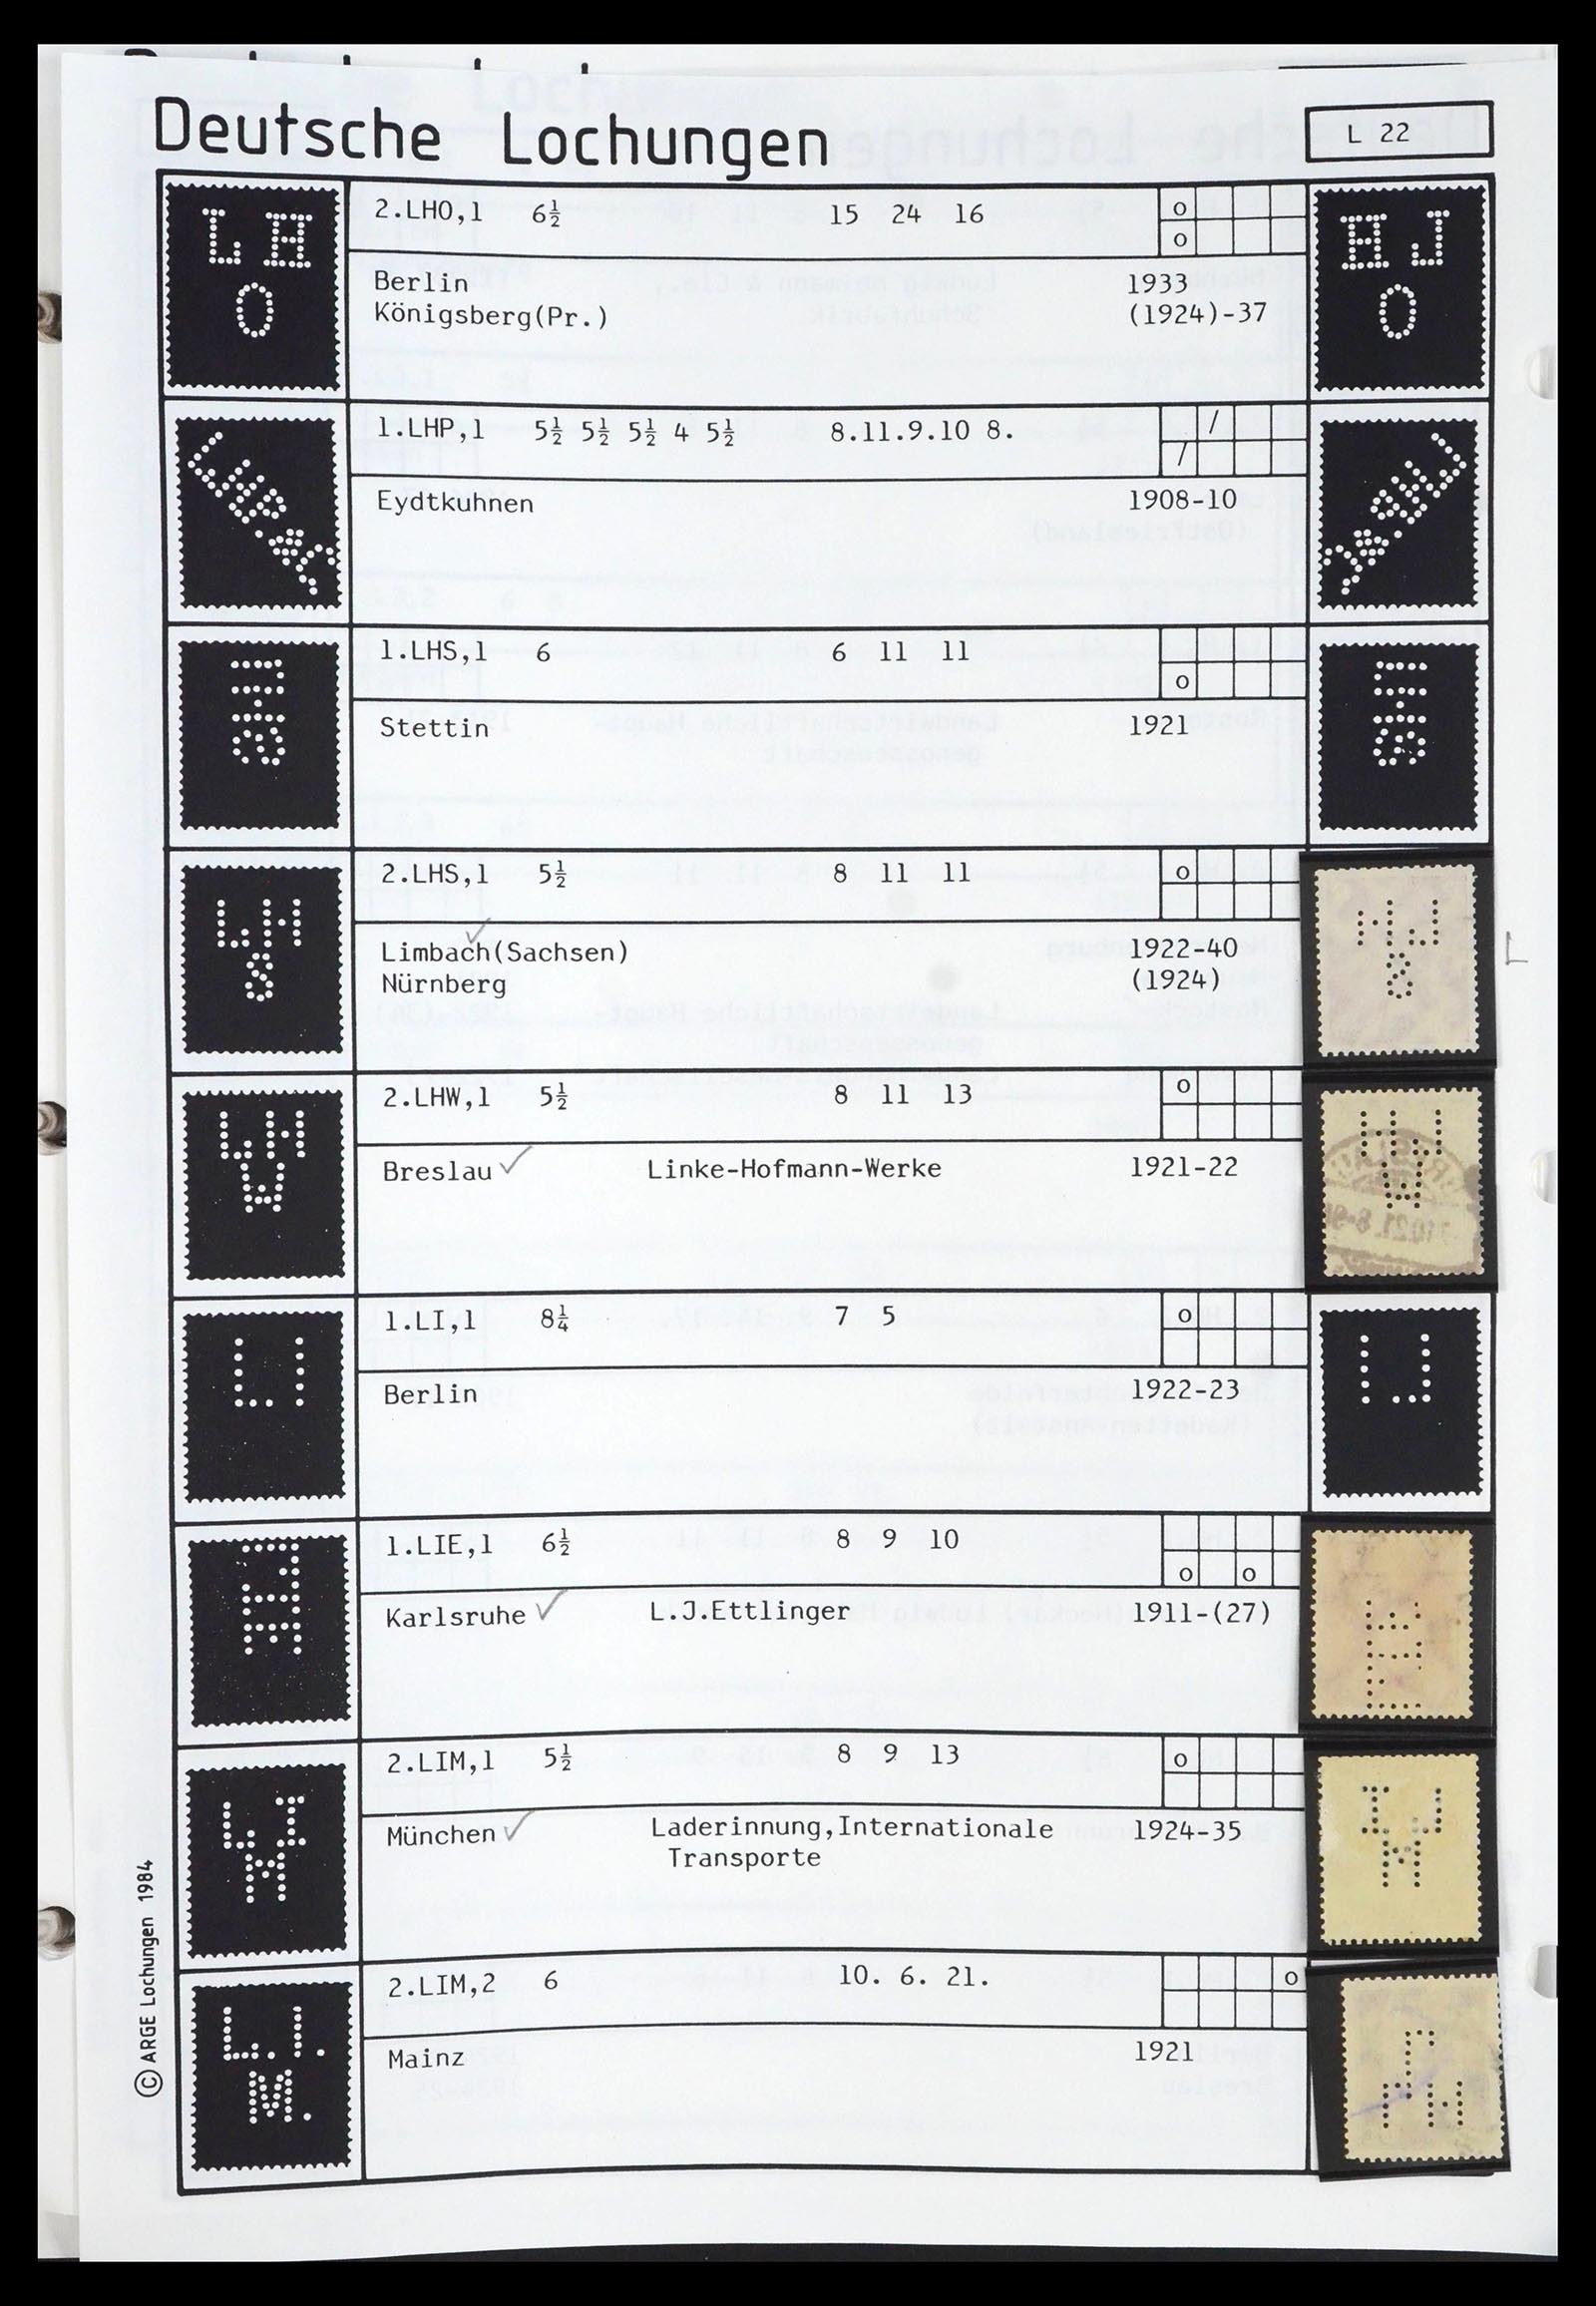 Deutsche Lochungen
L 22
L H
O
2.LHO,1 6½ 15 24 16
o
o
Berlin 1933
Königsberg(Pr.) (1924)-37
1.LHP,1 5½ 5½ 5½ 4 5½ 8.11.9.10 8.
/
/
Eydtkuhnen 1908-10
LHS
1.LHS,1 6 6 11 11
o
Stettin 1921
LH
S
2.LHS,1 5½ 8 11 11
o
Limbach(Sachsen) 1922-40
Nürnberg (1924)
LH
W
2.LHW,1 5½ 8 11 13
o
Breslau ✓ Linke-Hofmann-Werke 1921-22
LI
1.LI,1 8¼ 7 5
o
Berlin 1922-23
LIE
1.LIE,1 6½ 8 9 10
o o
Karlsruhe ✓ L.J.Ettlinger 1911-(27)
LI
M
2.LIM,1 5½ 8 9 13
o
München ✓ Laderinnung,Internationale 1924-35
Transporte
L.I.
M.
2.LIM,2 6 10. 6. 21.
o
Mainz 1921
© ARGE Lochungen 1984